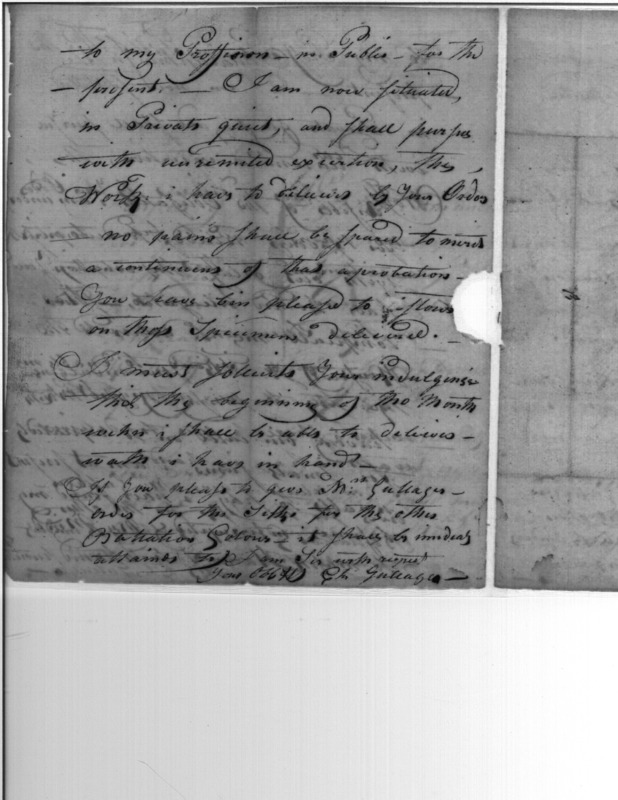 to my Proffesion – in Public – for the
– present. – I am now situated,
in Private quiet, and shall purse
with unremited exsertion, the
Work i have to deliever by Your Order
no pains shall be spared to merit
a continuens of that aprobation –
You have bin pleased to
on thoss Specimens delivered. –
I must solicite Your indulgense
till the beginning of the Month
when i shall be able to deliever –
wath i have in hand –
If You please to give Mrs. Gullager –
order for the Silke for the other
Battalion Colours – it shall be imediat
attained to I am Sir with respect
Your Obt Ch Gullager –